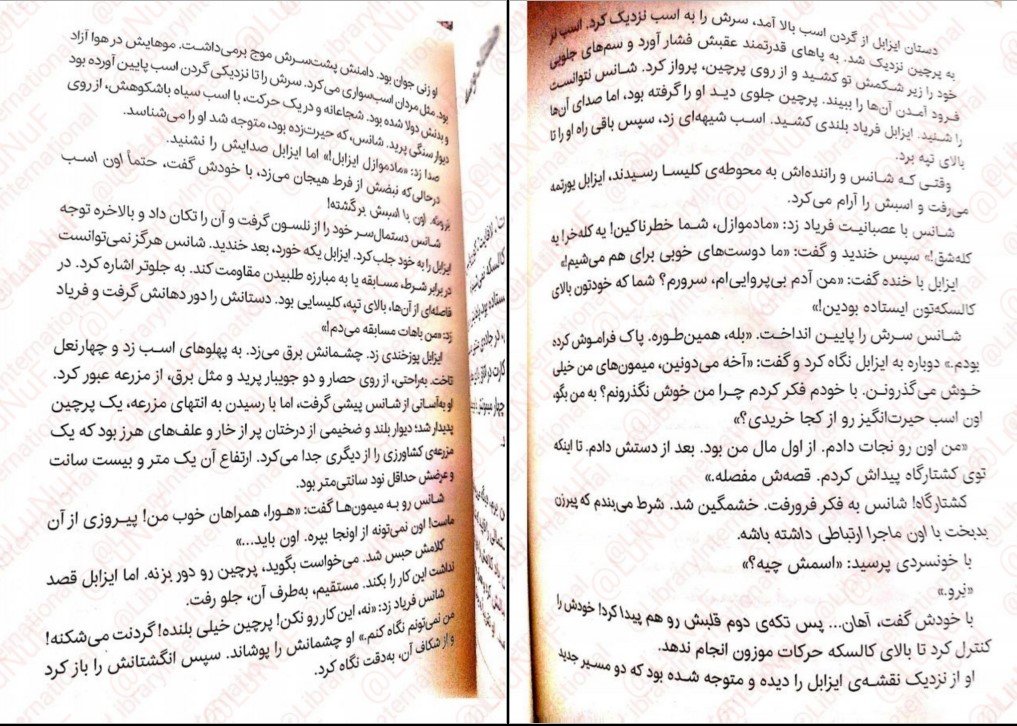 او زنی جوان بود. دامنش پشت‌سرش موج برمی‌داشت. موهایش در هوا آزاد
بود. مثل مردان اسب‌سواری می‌کرد. سرش را تا نزدیکی گردن اسب پایین آورده بود
و بدنش دولا شده بود. شجاعانه و در یک حرکت، با اسب سیاه باشکوهش، از روی
دیوار سنگی پرید. شانس، که حیرت‌زده بود، متوجه شد او را می‌شناسد.
صدا زد: «مادموازل ایزابل!» اما ایزابل صدایش را نشنید.
درحالی‌که نبضش از فرط هیجان می‌زد، با خودش گفت، حتماً اون اسب
اون با اسبش برگشته!
شانس دستمال‌سر خود را از نلسون گرفت و آن را تکان داد و بالاخره توجه
ایزابل را به خود جلب کرد. ایزابل یکه خورد، بعد خندید. شانس هرگز نمی‌توانست
در برابر شرط، مسابقه یا به مبارزه طلبیدن مقاومت کند. به جلوتر اشاره کرد. در
فاصله‌ای از آن‌ها، بالای تپه، کلیسایی بود. دستانش را دور دهانش گرفت و فریاد
زد: «من باهات مسابقه می‌دم!»
ایزابل پوزخندی زد. چشمانش برق می‌زد. به پهلوهای اسب زد و چهارنعل
تاخت. به‌راحتی، از روی حصار و دو جویبار پرید و مثل برق، از مزرعه عبور کرد.
او به‌آسانی از شانس پیشی گرفت، اما با رسیدن به انتهای مزرعه، یک پرچین
پدیدار شد؛ دیوار بلند و ضخیمی از درختان پر از خار و علف‌های هرز بود که یک
مزرعه‌ی کشاورزی را از دیگری جدا می‌کرد. ارتفاع آن یک متر و بیست سانت
و عرضش حداقل نود سانتی‌متر بود.
شانس رو به میمون‌ها گفت: «هورا، همراهان خوب من! پیروزی از آن
ماست! اون نمی‌تونه از اونجا بپره. اون باید...»
کلامش حبس شد. می‌خواست بگوید، پرچین رو دور بزنه. اما ایزابل قصد
نداشت این کار را بکند. مستقیم، به‌طرف آن، جلو رفت.
شانس فریاد زد: «نه، این کار رو نکن! پرچین خیلی بلنده! گردنت می‌شکنه!
من نمی‌تونم نگاه کنم.» او چشمانش را پوشاند. سپس انگشتانش را باز کرد
و از شکاف آن، به‌دقت نگاه کرد.
دستان ایزابل از گردن اسب بالا آمد، سرش را به اسب نزدیک کرد. اسب
به پرچین نزدیک شد. به پاهای قدرتمند عقبش فشار آورد و سم‌های جلویی
خود را زیر شکمش تو کشید و از روی پرچین، پرواز کرد. شانس نتوانست
فرود آمدن آن‌ها را ببیند. پرچین جلوی دید او را گرفته بود، اما صدای آن‌ها
را شنید. ایزابل فریاد بلندی کشید. اسب شیهه‌ای زد، سپس باقی راه او را تا
بالای تپه برد.
وقتی که شانس و راننده‌اش به محوطه‌ی کلیسا رسیدند، ایزابل یورتمه
می‌رفت و اسبش را آرام می‌کرد.
شانس با عصبانیت فریاد زد: «مادموازل، شما خطرناکین! یه کله‌خر! یه
کله‌شق!» سپس خندید و گفت: «ما دوست‌های خوبی برای هم می‌شیم!»
ایزابل با خنده گفت: «من آدم بی‌پروایی‌ام، سرورم؟ شما که خودتون بالای
کالسکه‌تون ایستاده بودین!»
شانس سرش را پایین انداخت. «بله، همین‌طوره. پاک فراموش کرده
بودم.» دوباره به ایزابل نگاه کرد و گفت: «آخه می‌دونین، میمون‌های من خیلی
خوش می‌گذرونن. با خودم فکر کردم چرا من خوش نگذرونم؟ به من بگو،
اون اسب حیرت‌انگیز رو از کجا خریدی؟»
«من اون رو نجات دادم. از اول مال من بود. بعد از دستش دادم. تا اینکه
توی کشتارگاه پیداش کردم. قصه‌ش مفصله.»
کشتارگاه! شانس به فکر فرورفت. خشمگین شد. شرط می‌بندم که پیرزن
بدبخت با اون ماجرا ارتباطی داشته باشه.
با خونسردی پرسید: «اسمش چیه؟»
«نِرو.»
با خودش گفت، آهان... پس تکه‌ی دوم قلبش رو هم پیدا کرد! خودش را
کنترل کرد تا بالای کالسکه حرکات موزون انجام ندهد.
او از نزدیک نقشه‌ی ایزابل را دیده و متوجه شده بود که دو مسیر جدید